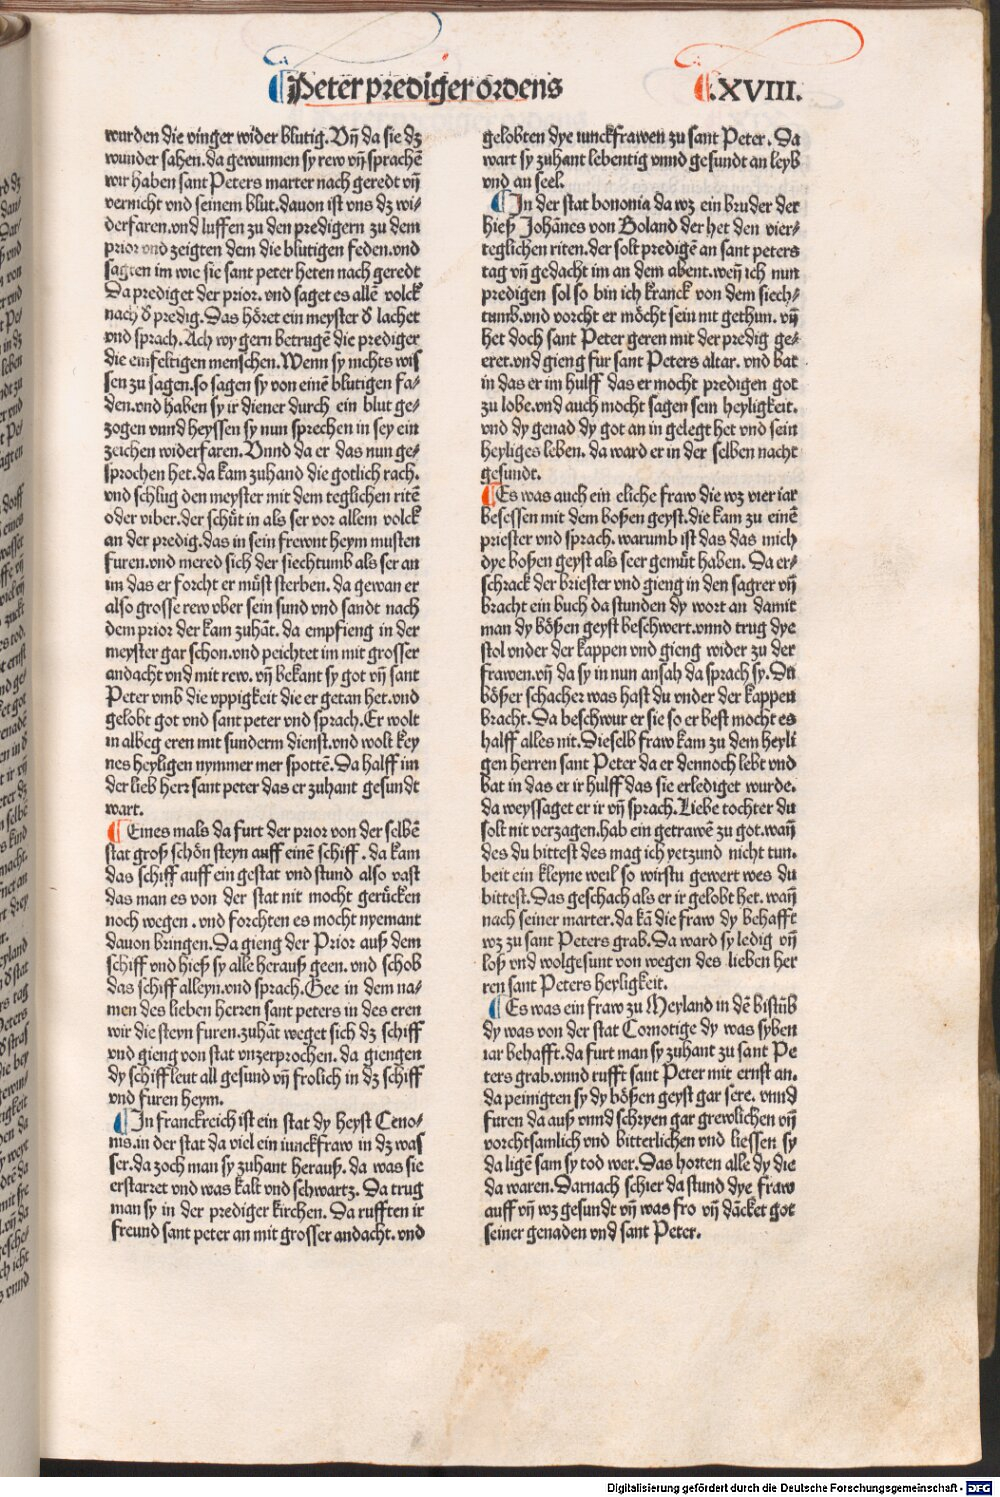 Peter prediger ordens
.XVIII.
wurden die vinger wider blutig. Vn̄ da sie dz
wunder sahen. da gewunnen sy rew vn̄ sprachē
wir haben sant Peters marter nach geredt vn̄
vernicht vnd seinem blut. dauon ist vns dz wi⸗
derfaren. vnd luffen zu den predigern zu dem
prior vnd zeigten dem die blutigen feden. vnd
sagten im wie sie sant peter heten nach geredt
Da prediget der prior. vnd saget es allē volck
nach d̕ predig. Das hŏret ein meyster d̕ lachet
vnd sprach. Ach wy gern betrugē die prediger
die einfeltigen menschen. Wenn sy nichts wis
sen zu sagen. so sagen sy von einē blutigen fa⸗
den. vnd haben sy ir diener durch ein blut ge⸗
zogen vnnd heyssen sy nun sprechen in sey ein
zeichen widerfaren. Vnnd da er das nun ge⸗
sprochen het. da kam zuhand die gotlich rach.
vnd schlug den meyster mit dem teglichen ritē
oder viber. der schŭt in als ser vor allem volck
an der predig. das in sein frewnt heym musten
furen. vnd mered sich der siechtumb als ser an
im das er forcht er mŭst sterben. da gewan er
also grosse rew vber sein sund vnd sandt nach
dem prior der kam zuhāt. da empfieng in der
meyster gar schon. vnd peichtet im mit grosser
andacht vnd mit rew. vn̄ bekant sy got vn̄ sant
Peter vmb die vppigkeit die er getan het. vnd
gelobt got vnd sant peter vnd sprach. Er wolt
in albeg eren mit sunderm dienst. vnd wolt key
nes heyligen nymmer mer spottē. Da halff im
der lieb herr sant peter das er zuhant gesundt
wart.
Eines mals da furt der prior von der selbē
stat groß schŏn steyn auff einē schiff . da kam
das schiff auff ein gestat vnd stund also vast
das man es von der stat nit mocht gerŭcken
noch wegen . vnd forchten es mocht nyemant
dauon bringen. Da gieng der Prior auß dem
schiff vnd hieß sy alle herauß geen. vnd schob
das schiff alleyn. vnd sprach. Gee in dem na⸗
men des lieben herren sant peters in des eren
wir die steyn furen. zuhāt weget sich dz schiff
vnd gieng von stat vnzerprochen. da giengen
dy schiffleut all gesund vn̄ frolich in dz schiff
vnd furen heym.
In franckreich ist ein stat dy heyst Ceno⸗
nis. in der stat da viel ein iunckfraw in dz was
ser. da zoch man sy zuhant herauß. da was sie
erstarret vnd was kalt vnd schwartz. Da trug
man sy in der prediger kirchen. Da rufften ir
freund sant peter an mit grosser andacht. vnd
gelobten dye iunckfrawen zu sant Peter. Da
wart sy zuhant lebentig vnnd gesundt an leyb
vnd an seel.
In der stat bononia da wz ein bruder der
hieß Johānes von Boland der het den vier⸗
teglichen riten. der solt predigē an sant peters
tag vn̄ gedacht im an dem abent. wen̄ ich nun
predigen sol so bin ich kranck von dem siech⸗
tumb. vnd vorcht er mŏcht sein nit gethun. vn̄
het doch sant Peter geren mit der predig ge⸗
eret. vnd gieng fur sant Peters altar. vnd bat
in das er im hulff das er mocht predigen got
zu lobe. vnd auch mocht sagen sein heyligkeit.
vnd dy genad dy got an in gelegt het vnd sein
heyliges leben. da ward er in der selben nacht
gesundt.
Es was auch ein eliche fraw die wz vier iar
besessen mit dem boßen geyst. die kam zu einē
priester vnd sprach. warumb ist das das mich
dye boßen geyst als seer gemŭt haben. Da er⸗
schrack der briester vnd gieng in den sagrer vn̄
bracht ein buch da stunden dy wort an damit
man dy bŏßen geyst beschwert. vnnd trug dye
stol vnder der kappen vnd gieng wider zu der
frawen. vn̄ da sy in nun ansah da sprach sy. Du
bŏßer schacher was hast du vnder der kappen
bracht. Da beschwur er sie so er best mocht es
halff alles nit. Dieselb fraw kam zu dem heyli
gen herren sant Peter da er dennoch lebt vnd
bat in das er ir hulff das sie erlediget wurde.
da weyssaget er ir vn̄ sprach. Liebe tochter du
solt nit verzagen. hab ein getrawē zu got. wan̄
des du bittest des mag ich yetzund nicht tun.
beit ein kleyne weil so wirstu gewert wes du
bittest. Das geschach als er ir gelobt het. wan̄
nach seiner marter. da kā die fraw dy behafft
wz zu sant Peters grab. Da ward sy ledig vn̄
loß vnd wolgesunt von wegen des lieben her
ren sant Peters heyligkeit.
Es was ein fraw zu Meyland in dē bistūb
dy was von der stat Comotige dy was syben
iar behafft. da furt man sy zuhant zu sant Pe
ters grab. vnnd rufft sant Peter mit ernst an.
da peinigten sy dy bŏßen geyst gar sere. vnnd
furen da auß vnnd schryen gar grewlichen vn̄
vorchtsamlich vnd bitterlichen vnd liessen sy
da ligē sam sy tod wer. Das horten alle dy die
da waren. Darnach schier da stund dye fraw
auff vn̄ wz gesundt vn̄ was fro vn̄ dācket got
seiner genaden vnd sant Peter.
Digitalisierung gefördert durch die Deutsche Forschungsgemeinschaft - DFG